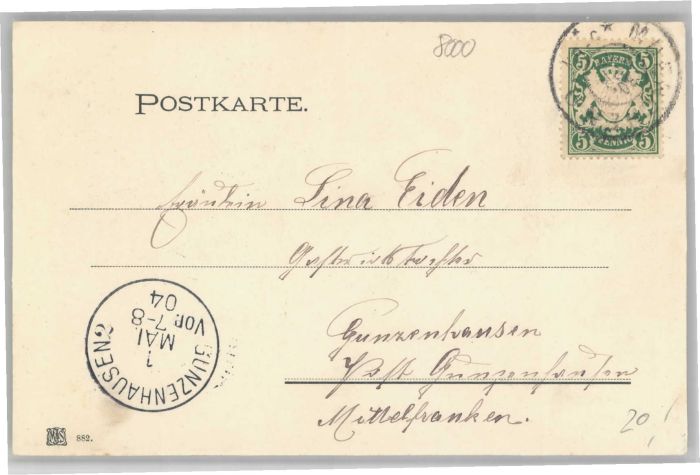 8000
5 BAYERN 5
5 PFENNIG 5
POSTKARTE.
Fräulein Lina Eiden
Gastwirtstochter
Gunzenhausen
Post Gunzenhausen
Mittelfranken.
GUNZENHAUSEN 2
1
MAI
VOR. 7-8
04
882.
20,